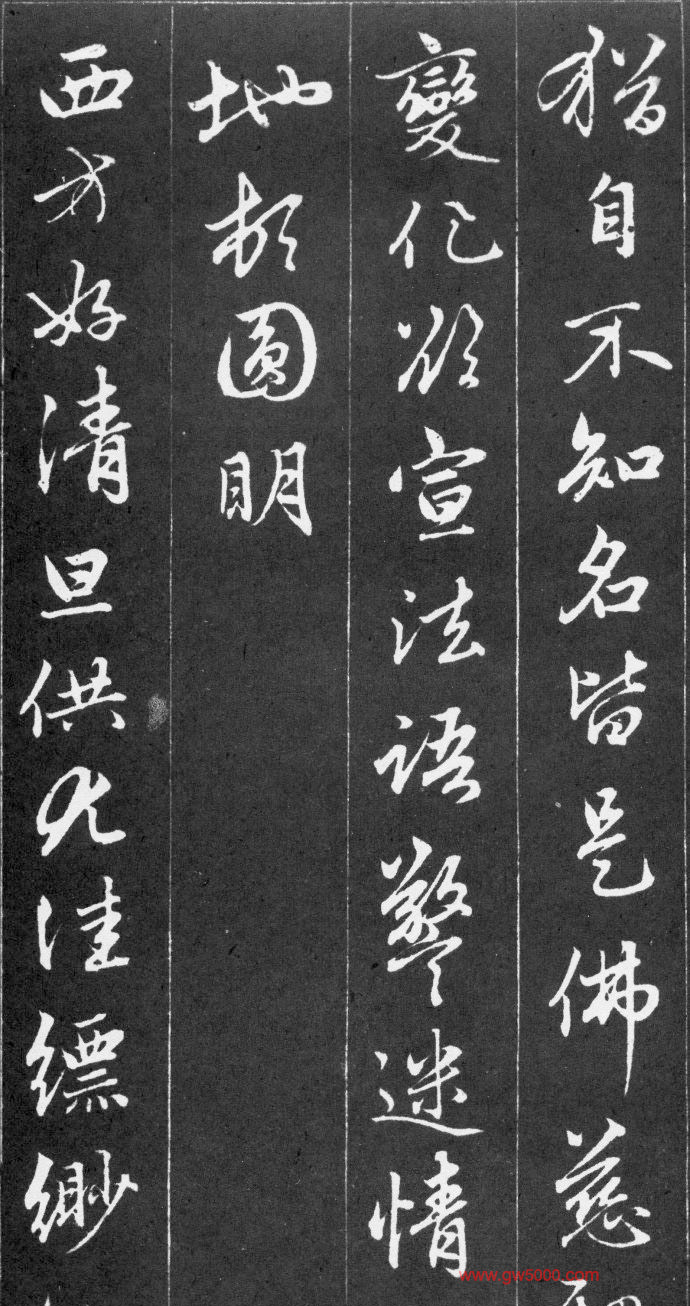 猶自不知名皆是佛慈
變化欲宣法語警迷情
地於圓明
西方好清旦供尤佳縹緲
www.gw5000.com